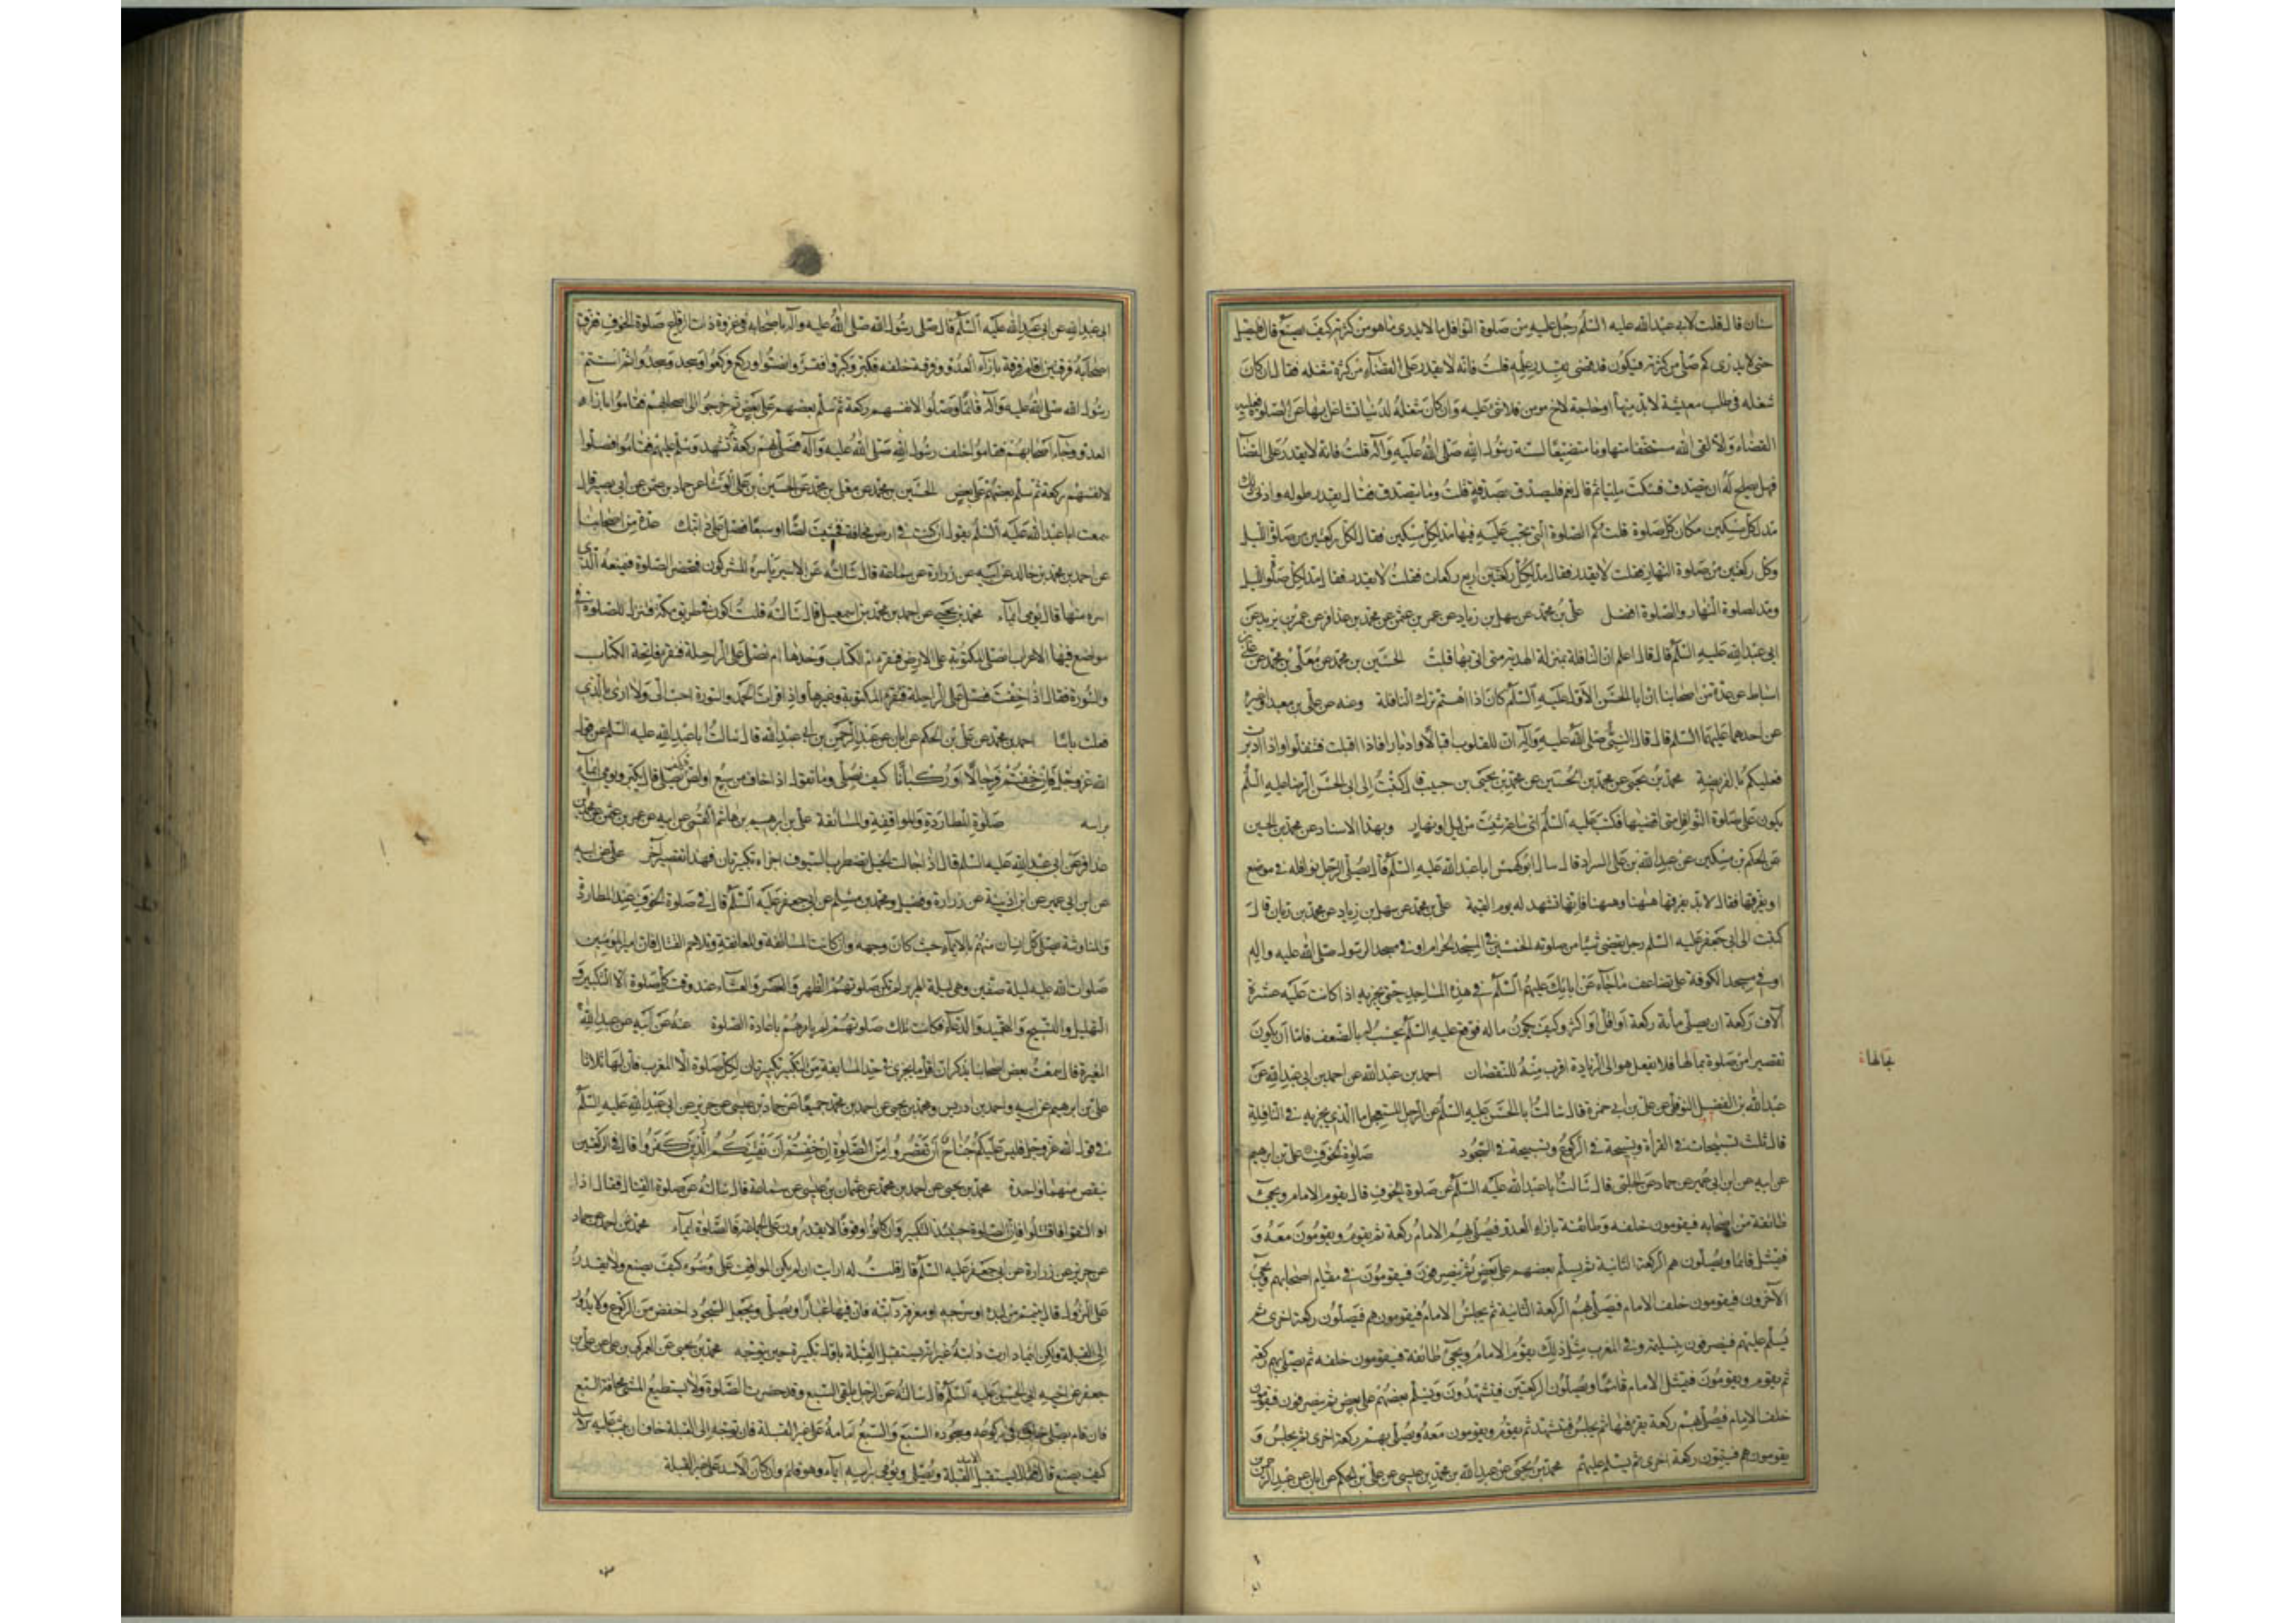 سنان قال قلت لابي عبد الله عليه السلم رجل عليه من صلوة النوافل ما لا يدرى ما هو من كثرته كيف يصنع قال فليصل
حتى لا يدرى كم صلى من كثرته فيكون قد قضى بقدر علمه قلت فانه لا يقدر على القضاء من كثرة شغله فقال ان كان
شغله فى طلب معيشة لابد منها او حاجة لاخ مومن فلا شئ عليه وان كان شغله لدنيا تشاغل بها عن الصلوة فعليه
القضاء والا لقى الله مستخفا متهاونا متضيعا لسنة رسول الله صلى الله عليه وآله قلت فانه لا يقدر على القضاء
فهل يصلح له ان يتصدق فسكت مليا ثم قال نعم فليصدق بصدقة قلت وما يتصدق فقال بقدر طوله وادنى ذلك
مد لكل مسكين مكان كل صلوة قلت وكم الصلوة التى تجب عليه فيها مد لكل مسكين فقال لكل ركعتين من صلوة الليل
وكل ركعتين من صلوة النهار فقلت لا يقدر فقال مد لكل ركعتين اربع ركعات فقلت لا يقدر فقال مد لكل صلوة الليل
ومد لصلوة النهار والصلوة افضل على بن محمد عن سهل بن زياد عن عمر بن عثمن عن محمد بن عذافر عن عمر بن يزيد عن
ابى عبد الله عليه السلم قال قال اعلم ان النافلة بمنزلة الهدية متى اتى بها قبلت الحسين بن محمد عن معلى بن محمد عن على بن
اسباط عن عدة من اصحابنا ان ابا الحسن الاول عليه السلم كان اذا اهتم ترك النافلة وعنه عن على بن معبد او غيره
عن احدهما عليهما السلم قال قال النبى صلى الله عليه وآله ان للقلوب اقبالا وادبارا فاذا اقبلت فتنفلوا واذا ادبرت
فعليكم بالفريضة محمد بن يحيى عن محمد بن الحسين عن محمد بن يحيى بن حبيب قال كتبت الى ابى الحسن الرضا عليه السلم
يكون على صلوة النوافل متى اقضيها فكتب عليه السلم اى ساعة شئت من ليل او نهار وبهذا الاسناد عن محمد بن الحسين
عن الحكم بن مسكين عن عبد الله بن على السراد قال سال ابو كهمس ابا عبد الله عليه السلم فقال يصلى الرجل نوافله فى موضع
او يفرقها فقال لا بل يفرقها ههنا وههنا فانها تشهد له يوم القيمة على بن محمد عن سهل بن زياد عن محمد بن ريان قال
كتبت الى ابى جعفر عليه السلم رجل يقضى شيئا من صلوته الخمسين فى المسجد الحرام او فى مسجد الرسول صلى الله عليه واله
او فى مسجد الكوفة على تضاعف ما جاء عن ابائك عليهم السلم فى هذه المساجد حتى يجزيه اذا كانت عليه عشرة
آلاف ركعة ان يصلى مائة ركعة او اقل او اكثر وكيف يكون حاله فوقع عليه السلم يحسب له بالضعف فاما ان يكون
تقصيرا من صلوة بحالها فلا يفعل هو الى الزيادة اقرب منه للنقصان احمد بن عبد الله عن احمد بن ابى عبد الله عن
بحالها
عبد الله بن الفضل النوفلى عن على بن ابى حمزة قال سالت ابا الحسن عليه السلم عن الرجل المستعجل ما الذى يجزيه فى النافلة
قال ثلث تسبيحات فى القرأة وتسبيحة فى الركوع وتسبيحة فى السجود صلوة الخوف على بن ابرهيم
عن ابيه عن ابن ابى عمير عن حماد عن الحلبى قال سالت ابا عبد الله عليه السلم عن صلوة الخوف قال يقوم الامام ويجئ
طائفة من اصحابه فيقومون خلفه وطائفة بازاء العدو فيصلى بهم الامام ركعة ثم يقوم ويقومون معه و
فيمثل قائما ويصلون هم الركعة الثانية ثم يسلم بعضهم على بعض ثم ينصرفون فيقومون فى مقام اصحابهم ويجئ
الآخرون فيقومون خلف الامام فيصلى بهم الركعة الثانية ثم يجلس الامام فيقومون هم فيصلون ركعة اخرى ثم
يسلم عليهم فينصرفون بتسليمه وفى المغرب مثل ذلك يقوم الامام ويجئ طائفة فيقومون خلفه ثم يصلى بهم ركعة
ثم يقوم ويقومون فيمثل الامام قائما ويصلون الركعتين فيتشهدون ويسلم بعضهم على بعض ثم ينصرفون فيقومون
خلف الامام فيصلى بهم ركعة يقرء فيها ثم يجلس فيتشهد ثم يقوم ويقومون معه ويصلى بهم ركعة اخرى ثم يجلس و
يقومون هم فيتمون ركعة اخرى ثم يسلم عليهم محمد بن يحيى عن عبد الله بن محمد بن عيسى عن على بن الحكم عن ابان عن عبد الرحمن بن
ابى عبد الله عن ابى عبد الله عليه السلم قال صلى رسول الله صلى الله عليه وآله باصحابه فى غزوة ذات الرقاع صلوة الخوف ففرق
اصحابه فرقتين اقام فرقة بازآء العدو وفرقة خلفه فكبر وكبروا فقرأ وانصتوا وركع وركعوا وسجد وسجدوا ثم استتم
رسول الله صلى الله عليه وآله قائما وصلوا لانفسهم ركعة ثم سلم بعضهم على بعض ثم خرجوا الى اصحابهم فقاموا بازاء
العدو وجاء اصحابهم فقاموا خلف رسول الله صلى الله عليه وآله فصلى بهم ركعة ثم تشهد وسلم عليهم فقاموا فصلوا
لانفسهم ركعة ثم سلم بعضهم على بعض الحسين بن محمد عن معلى بن محمد عن الحسن بن على الوشاء عن حماد بن عثمن عن ابى بصير قال
سمعت ابا عبد الله عليه السلم يقول ان كنت فى ارض مخافة فخشيت لصا او سبعا فصل على دابتك عدة من اصحابنا
عن احمد بن محمد بن خالد عن ابيه عن زرارة عن سماعة قال سالته عن الاسير ياسره المشركون فتحضر الصلوة فيمنعه الذى
اسره منها قال يومى ايماء محمد بن يحيى عن احمد بن محمد بن اسمعيل قال سالته قلت اكون فى طريق مكة فننزل للصلوة فى
مواضع فيها الاعراب انصلى المكتوبة على الارض فنقرء ام الكتاب وحدها ام نصلى على الراحلة فنقرء فاتحة الكتاب
والسورة فقال اذا خفت فصل على الراحلة المكتوبة وغيرها واذا قرات الحمد والسورة احب الى ولا ارى بالذى
فعلت باسا احمد بن محمد عن على بن الحكم عن ابان عن عبد الرحمن بن ابى عبد الله قال سالت ابا عبد الله عليه السلم عن قول
الله عز وجل فان خفتم فرجالا او ركبانا كيف يصلى وما تقول اذا خاف من سبع او لص كيف يصلى قال يكبر ويومى ايماء
براسه صلوة المطاردة والمواقفة والمسائفة على بن ابرهيم بن هاشم القمى عن ابيه عن عمر بن عثمن عن محمد بن
عذافر عن ابى عبد الله عليه السلم قال اذا جالت الخيل تضطرب السيوف اجزاه تكبيرتان فهذا تقصير آخر على عن ابيه
عن ابن ابى عمير عن ابن اذينة عن زرارة وفضيل ومحمد بن مسلم عن ابى جعفر عليه السلم قال فى صلوة الخوف عند المطاردة
والمناوشة يصلى كل انسان منهم بالايماء حيث كان وجهه وان كانت المسائفة والمعانقة وتلاحم القتال فان امير المومنين
صلوات الله عليه ليلة صفين وهى ليلة الهرير لم تكن صلوتهم الظهر والعصر والمغرب والعشاء عند وقت كل صلوة الا التكبير و
التهليل والتسبيح والتحميد والدعاء فكانت تلك صلوتهم لم يامرهم باعادة الصلوة عنه عن ابيه عن عبد الله بن
المغيرة قال سمعت بعض اصحابنا يذكر ان اقل ما يجزى فى حد المسايفة من التكبير تكبيرتان لكل صلوة الا المغرب فان لها ثلاثا
على بن ابرهيم عن ابيه واحمد بن ادريس ومحمد بن يحيى عن احمد بن محمد جميعا عن حماد بن عيسى عن حريز عن ابى عبد الله عليه السلم
فى قول الله عز وجل فليس عليكم جناح ان تقصروا من الصلوة ان خفتم ان يفتنكم الذين كفروا قال فى الركعتين
ينقص منهما واحدة محمد بن يحيى عن احمد بن محمد عن عثمان بن عيسى عن سماعة قال سالته عن صلوة القتال فقال اذا
التقوا فاقتتلوا فان الصلوة حينئذ التكبير وان كانوا وقوفا لا يقدرون على الجماعة فالصلوة ايماء محمد عن احمد عن حماد
عن حريز عن زرارة عن ابى جعفر عليه السلم قال قلت له ارايت ان لم يكن المواقف على وضوء كيف يصنع ولا يقدر
على النزول قال يتيمم من لبده او سرجه او معرفة دابته فان فيها غبارا ويصلى ويجعل السجود اخفض من الركوع ولا يدور
الى القبلة ولكن اينما دارت دابته غير انه يستقبل القبلة باول تكبيرة حين يتوجه محمد بن يحيى عن العمركى بن على عن على بن
جعفر عن اخيه ابى الحسن عليه السلم قال سالته عن الرجل يلقى السبع وقد حضرت الصلوة ولا يستطيع المشى مخافة السبع
فان قام يصلى خاف فى ركوعه وسجوده السبع والسبع امامه على غير القبلة فان توجه الى القبلة خاف ان يثب عليه الاسد
كيف يصنع قال فقال يستقبل الاسد ويصلى ويومى براسه ايماء وهو قائم وان كان الاسد على غير القبلة